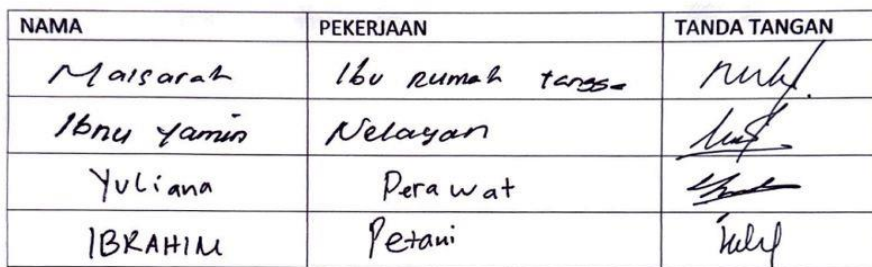 NAMA PEKERJAAN TANDA TANGAN
Maisarah Ibu rumah tangga
Ibnu Yamin Nelayan
Yuliana Perawat
IBRAHIM Petani